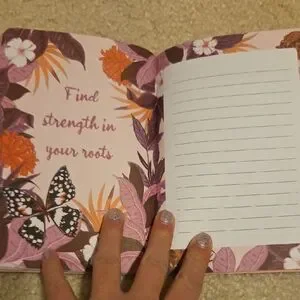 Find
strength in
your roots